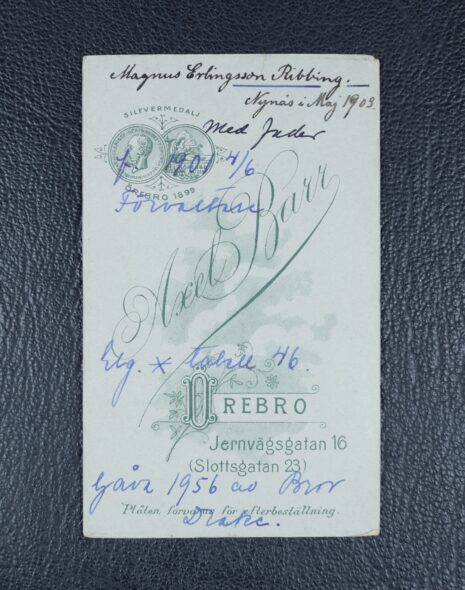 Magnus Erlingsson Ribbing.
Nynäs i Maj 1903.
SILFVERMEDALJ
Med Juder
f. 1901 4/6
ÖREBRO 1899
Förvaltare
Axel Barr
Elg. x tabell 46.
ÖREBRO
Jernvägsgatan 16
(Slottsgatan 23)
Gåva 1956 av Bror
Plåten förvaras för efterbeställning.
Drake.